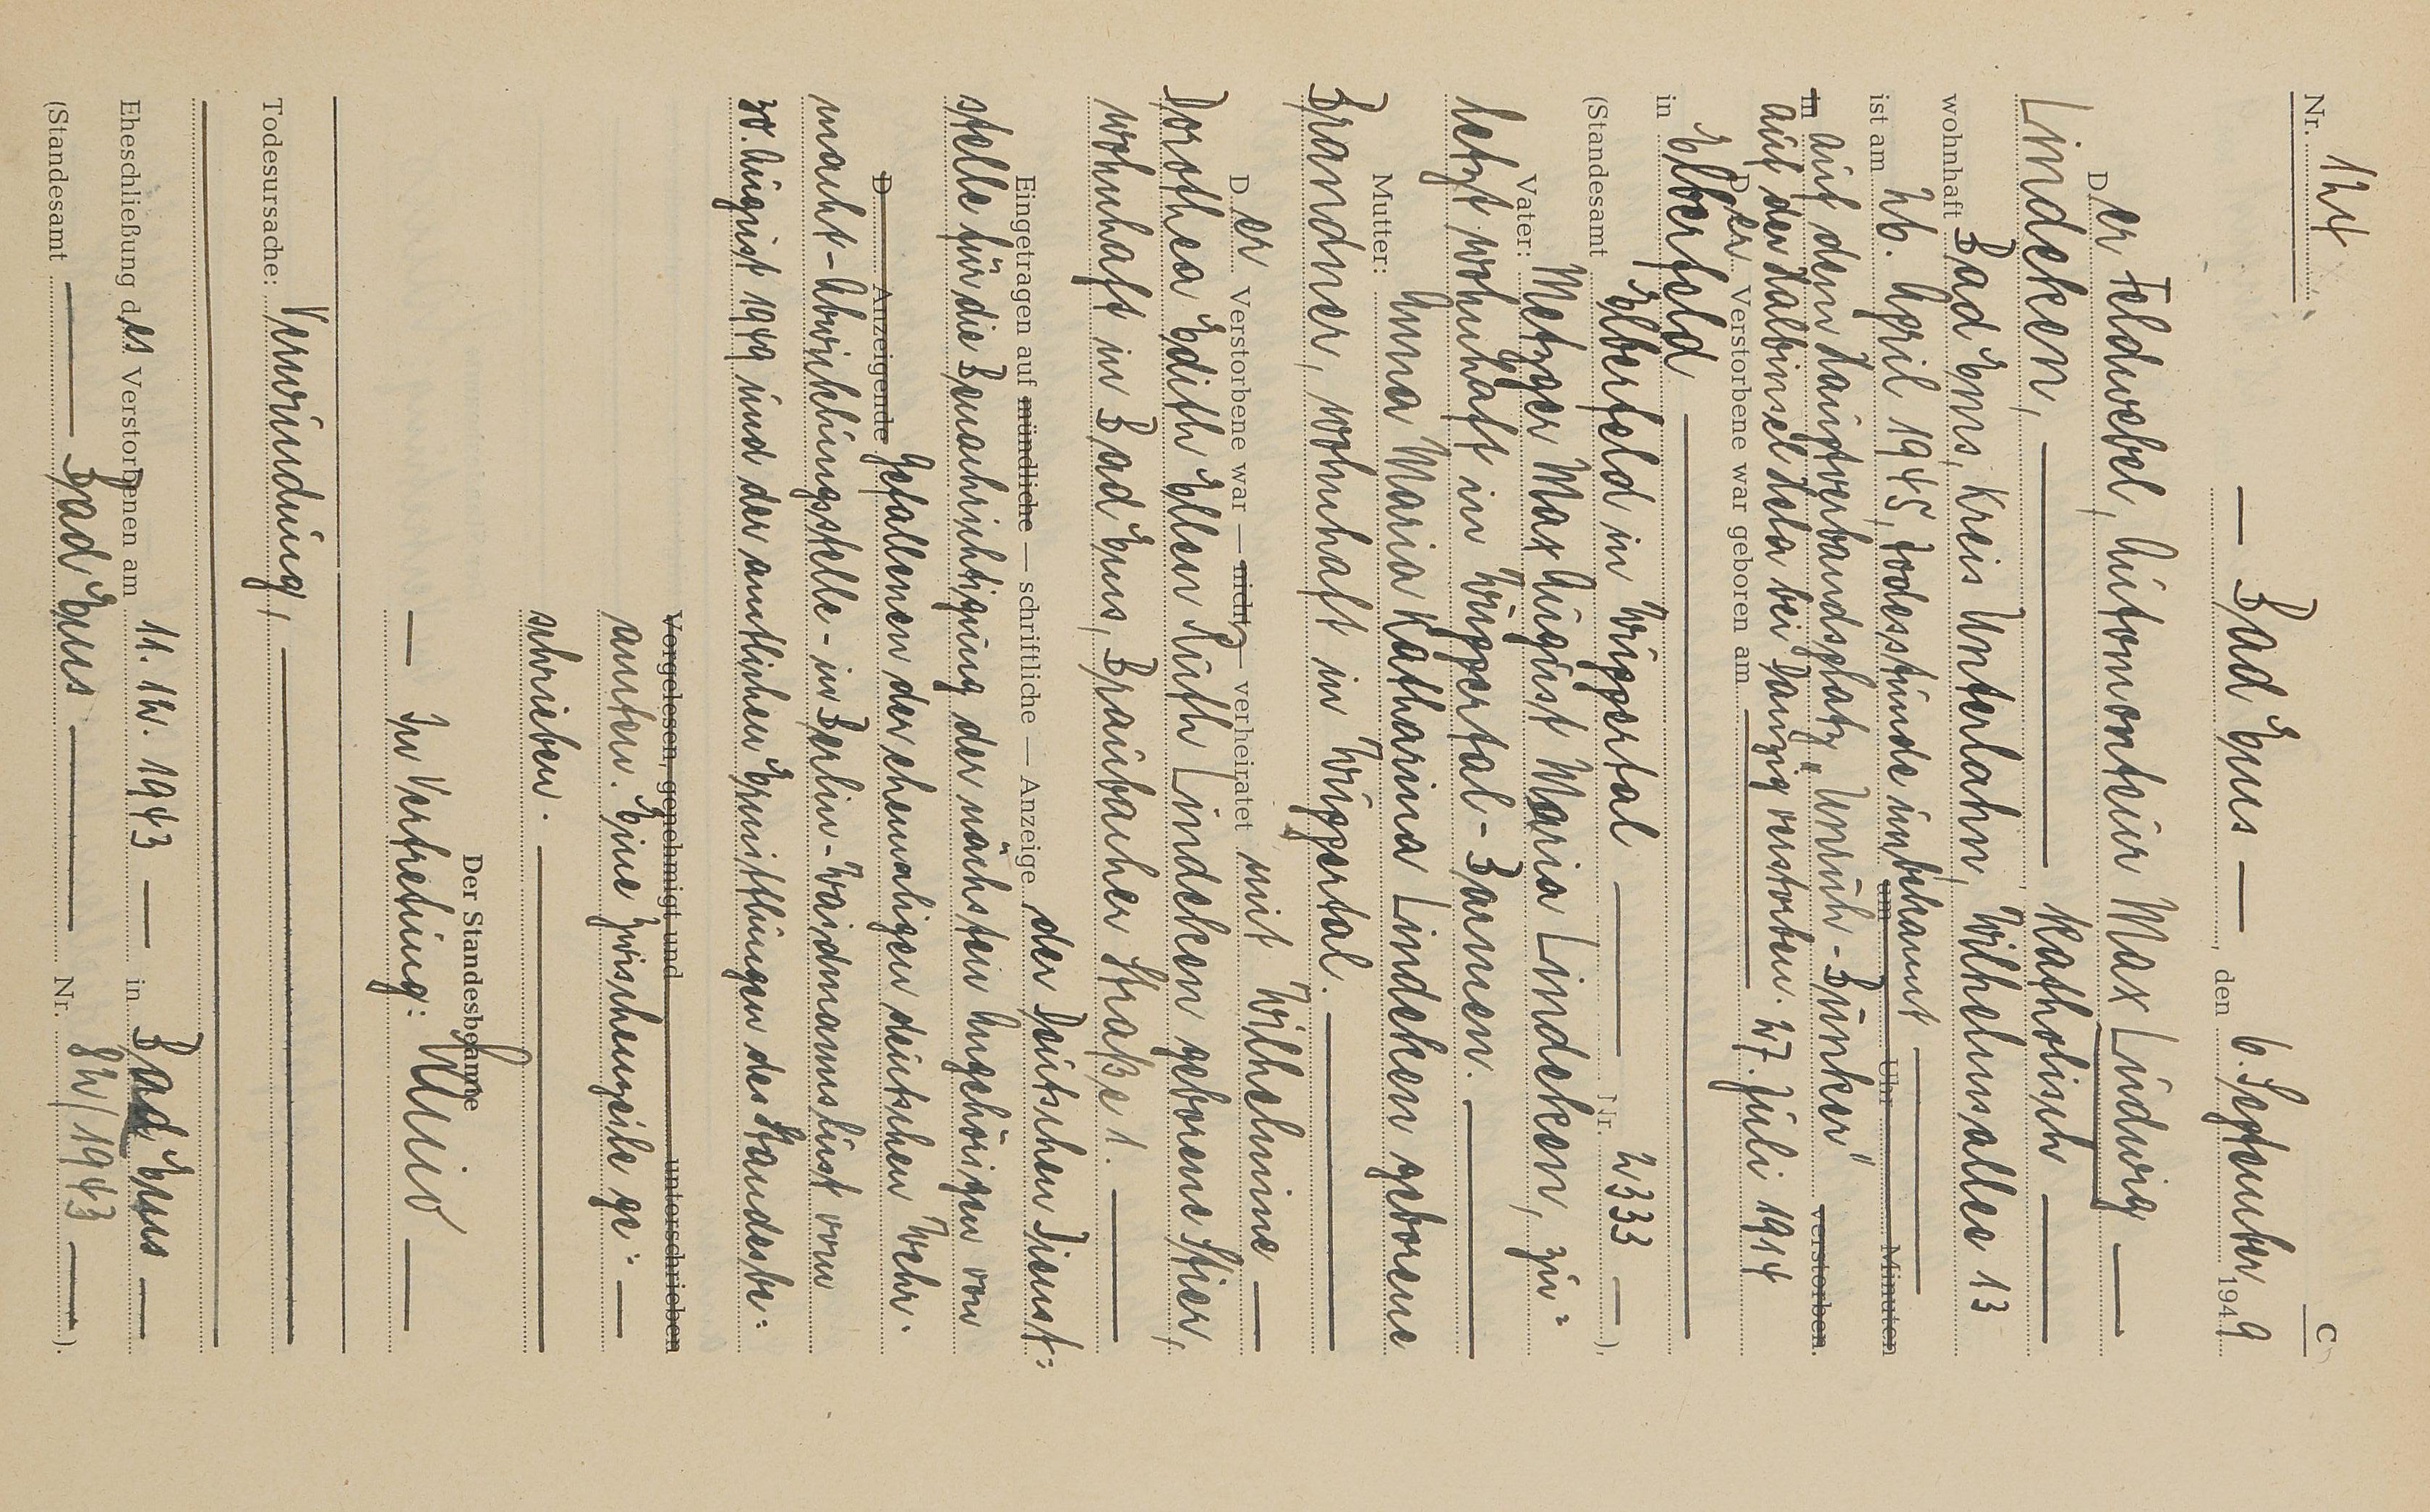 C
Nr. 124
— Bad Ems —, den 6. September 1949
Der Feldwebel, Automonteur Max Ludwig —
Lindeken, — katholisch —
wohnhaft Bad Ems, Kreis Unterlahn, Wilhelmsallee 13
ist am 26. April 1945, Todesstunde unbekannt — um Uhr Minuten
in auf dem Hauptverbandsplatz „Unruh-Bunker" verstorben.
auf der Halbinsel Hela bei Danzig verstorben.
Der Verstorbene war geboren am 27. Juli 1914
in Elberfeld —
(Standesamt Elberfeld in Wuppertal — Nr. 2333 —),
Vater: Metzger Max August Maria Lindeken, zu=
letzt wohnhaft in Wuppertal-Barmen. —
Mutter: Anna Maria Katharina Lindeken geborene
Brandner, wohnhaft in Wuppertal. —
Der Verstorbene war — nicht — verheiratet mit Wilhelmine —
Dorothea Edith Ellen Ruth Lindeken geborene Stier,
wohnhaft in Bad Ems, Braubacher Straße 1. —
Eingetragen auf mündliche — schriftliche — Anzeige der Deutschen Dienst=
stelle für die Benachrichtigung der nächsten Angehörigen von
D Anzeigende Gefallenen der ehemaligen deutschen Wehr-
macht-Abwicklungsstelle-in Berlin-Waidmannslust vom
30. August 1949 und der amtlichen Ermittlungen des Standesbe=
Vorgelesen, genehmigt und unterschrieben
amten. Eine Zwischenzeile ge= —
schrieben. —
Der Standesbeamte
— In Vertretung:
Todesursache: Verwundung, —
Eheschließung des Verstorbenen am 11. 12. 1943 — in Bad Ems —
(Standesamt — Bad Ems — Nr. 82/1943 —).